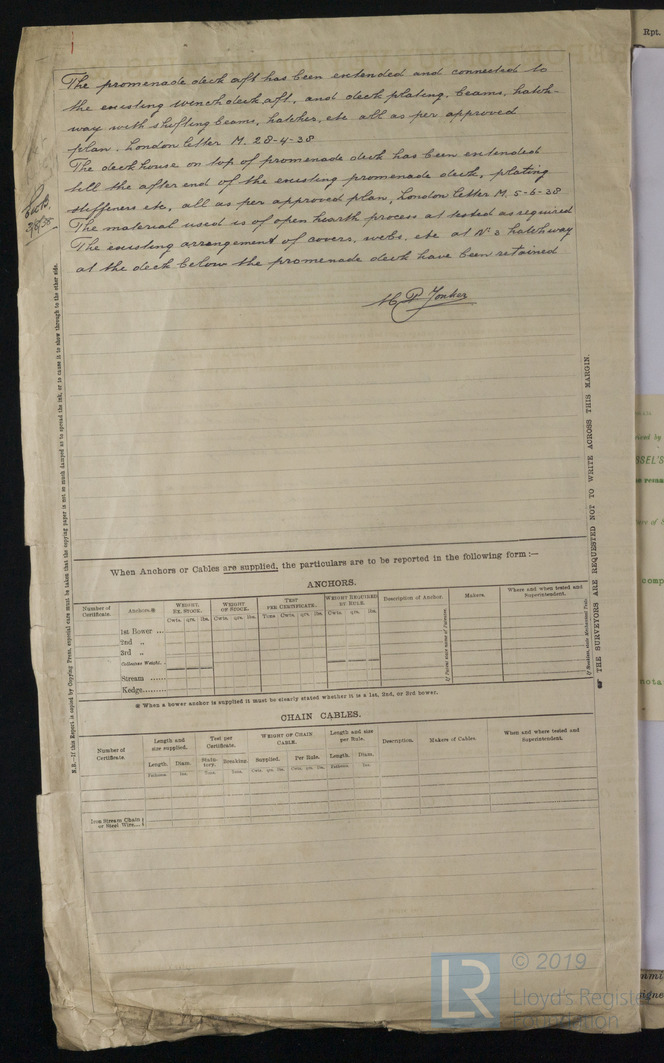 The promenade deck aft has been extended and connected to
the existing winch deck aft, and deck plating, beams, hatch-
way with shifting beams, hatches, etc all as per approved
plan. London letter M. 28-4-38
The deckhouse on top of promenade deck has been extended
till the after end of the existing promenade deck, plating
stiffeners etc, all as per approved plan, London letter M. 5-6-38
The material used is of open hearth process at tested as required
The existing arrangement of covers, webs, etc at No 3 hatchway
at the deck below the promenade deck have been retained
N.B.—If this Report is copied by Copying Press, especial care must be taken that the copying paper is not so much damped as to spread the ink, or to cause it to show through to the other side.
THE SURVEYORS ARE REQUESTED NOT TO WRITE ACROSS THIS MARGIN.
When Anchors or Cables are supplied, the particulars are to be reported in the following form :—
ANCHORS.
Number of Certificate. Anchors.* WEIGHT, EX. STOCK. WEIGHT OF STOCK. TEST PER CERTIFICATE. WEIGHT REQUIRED BY RULE. Description of Anchor. Makers. Where and when tested and Superintendent.
Cwts. qrs. lbs. Cwts. qrs. lbs. Tons Cwts. qrs. lbs. Cwts. qrs. lbs.
1st Bower ...
2nd „
3rd „
Collective Weight.
Stream ......
Kedge........
* When a bower anchor is supplied it must be clearly stated whether it is a 1st, 2nd, or 3rd bower.
CHAIN CABLES.
Number of Certificate. Length and size supplied. Test per Certificate. WEIGHT OF CHAIN CABLE. Length and size per Rule. Description. Makers of Cables. When and where tested and Superintendent.
Length. Diam. Statutory. Breaking. Supplied. Per Rule. Length. Diam.
Fathoms. Ins. Tons. Tons. Cwts. qrs. lbs. Cwts. qrs. lbs. Fathoms. Ins.
Iron Stream Chain
or Steel Wire...
Rpt.
LR
© 2019
Lloyd's Register
Foundation